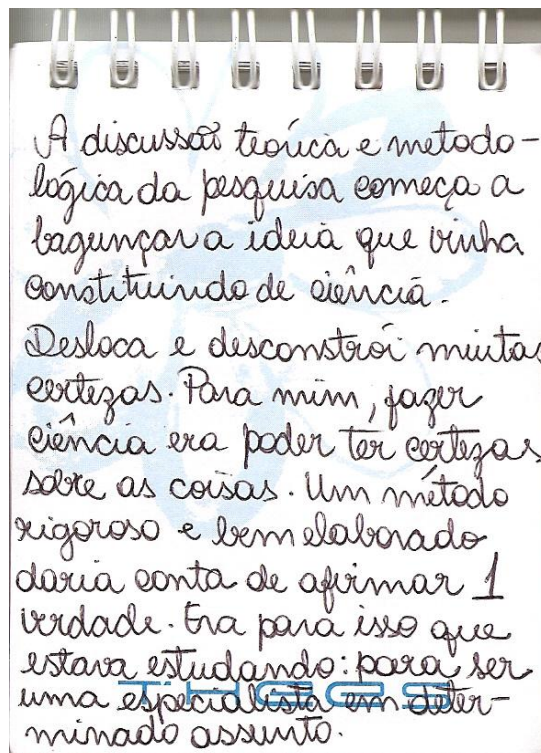 A discussão teórica e metodo-
lógica da pesquisa começa a
bagunçar a ideia que vinha
constituindo de ciência.
Desloca e desconstrói muitas
certezas. Para mim, fazer
ciência era poder ter certezas
sobre as coisas. Um método
rigoroso e bem elaborado
daria conta de afirmar 1
verdade. Era para isso que
estava estudando: para ser
uma especialista em deter-
minado assunto.